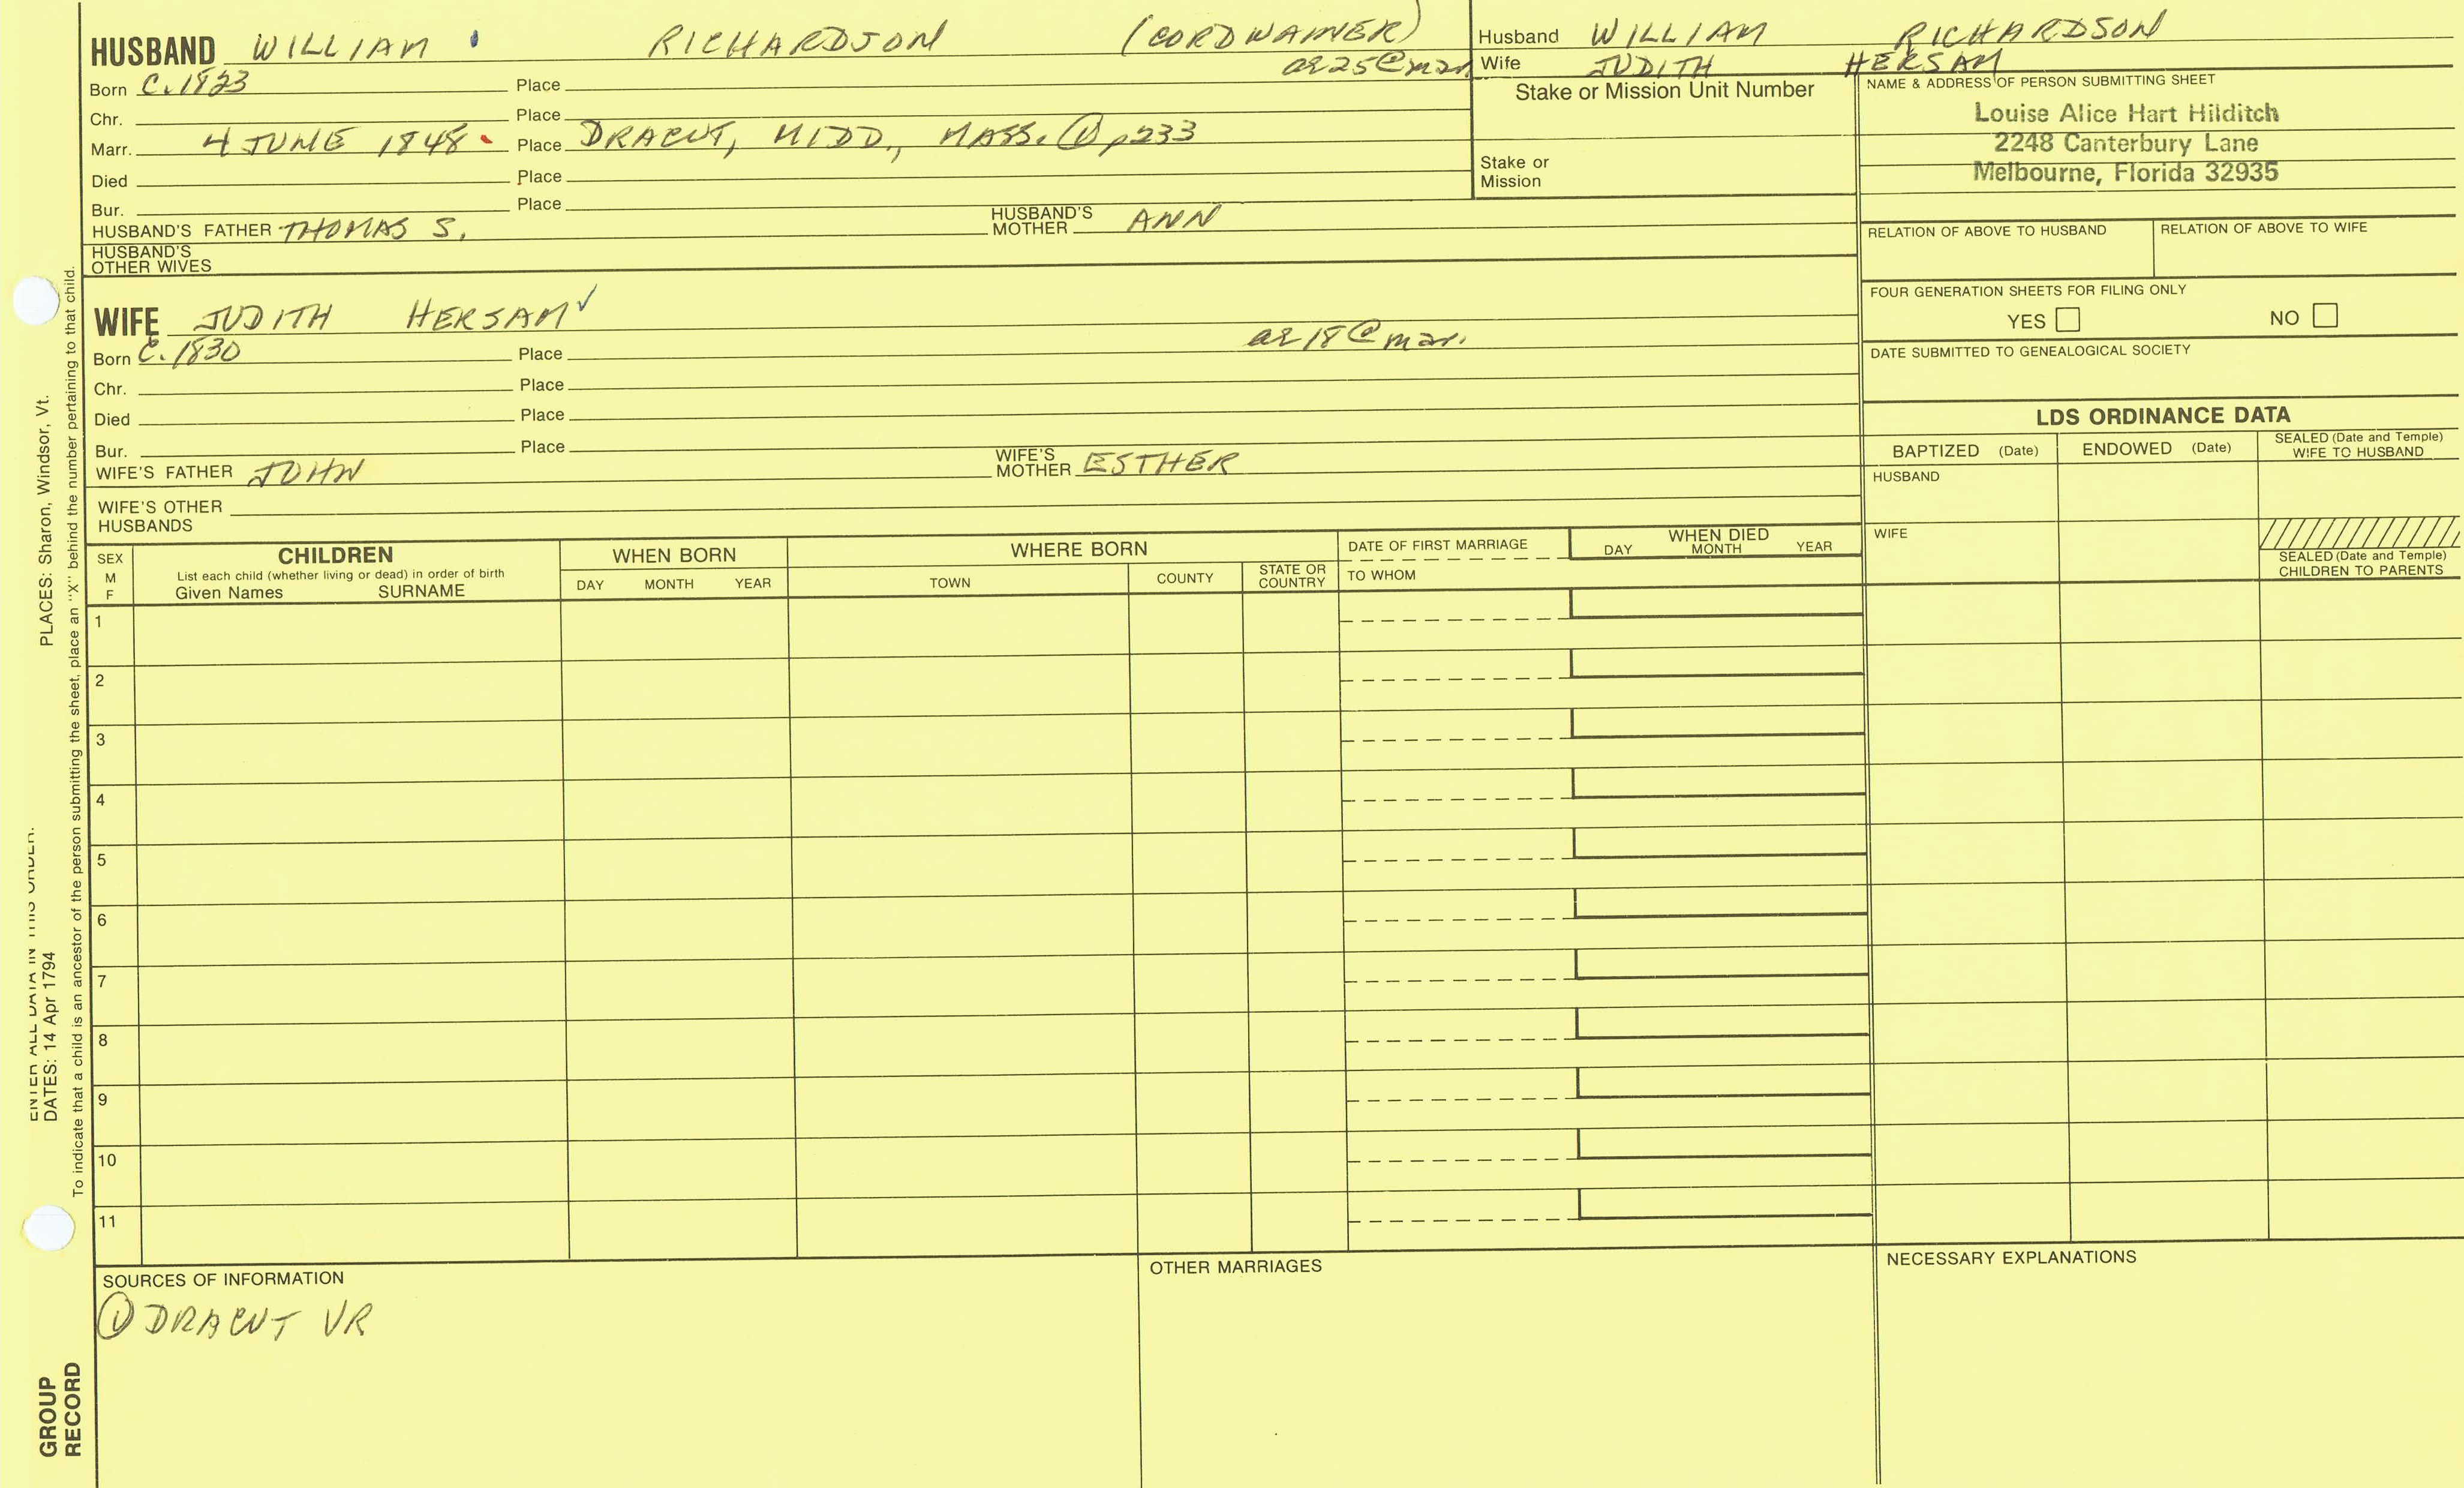 HUSBAND WILLIAM RICHARDSON (CORDWAINER)
ae 25 @ mar.
Born C. 1823 Place
Chr. Place
Marr. 4 JUNE 1848 Place DRACUT, MIDD., MASS. ① p233
Died Place
Bur. Place
HUSBAND'S FATHER THOMAS S. HUSBAND'S MOTHER ANN
HUSBAND'S OTHER WIVES
Husband WILLIAM RICHARDSON
Wife JUDITH HERSAM
Stake or Mission Unit Number
Stake or Mission
NAME & ADDRESS OF PERSON SUBMITTING SHEET
Louise Alice Hart Hilditch
2248 Canterbury Lane
Melbourne, Florida 32935
RELATION OF ABOVE TO HUSBAND RELATION OF ABOVE TO WIFE
FOUR GENERATION SHEETS FOR FILING ONLY
YES NO
DATE SUBMITTED TO GENEALOGICAL SOCIETY
WIFE JUDITH HERSAM ✓
ae 18 @ mar.
Born C. 1830 Place
Chr. Place
Died Place
Bur. Place
WIFE'S FATHER JOHN WIFE'S MOTHER ESTHER
WIFE'S OTHER HUSBANDS
LDS ORDINANCE DATA
BAPTIZED (Date) ENDOWED (Date) SEALED (Date and Temple) WIFE TO HUSBAND
HUSBAND
WIFE
SEALED (Date and Temple) CHILDREN TO PARENTS
SEX M F
CHILDREN
List each child (whether living or dead) in order of birth
Given Names SURNAME
WHEN BORN
DAY MONTH YEAR
WHERE BORN
TOWN COUNTY STATE OR COUNTRY
DATE OF FIRST MARRIAGE
TO WHOM
WHEN DIED
DAY MONTH YEAR
1
2
3
4
5
6
7
8
9
10
11
SOURCES OF INFORMATION
① DRACUT VR
OTHER MARRIAGES
NECESSARY EXPLANATIONS
ENTER ALL DATA IN THIS ORDER.
DATES: 14 Apr 1794 PLACES: Sharon, Windsor, Vt.
To indicate that a child is an ancestor of the person submitting the sheet, place an "X" behind the number pertaining to that child.
GROUP
RECORD